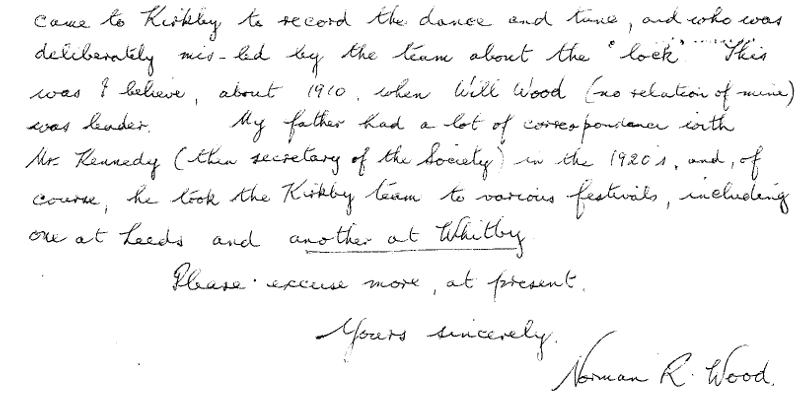 came to Kirkby to record the dance and tune, and who was
deliberately mis-led by the team about the 'lock'. This
was I believe, about 1910, when Will Wood (no relation of mine)
was leader. My father had a lot of correspondance with
Mr. Kennedy (then secretary of the Society) in the 1920's, and, of
course, he took the Kirkby team to various festivals, including
one at Leeds and another at Whitby.
Please excuse more, at present.
Yours sincerely,
Norman R. Wood.